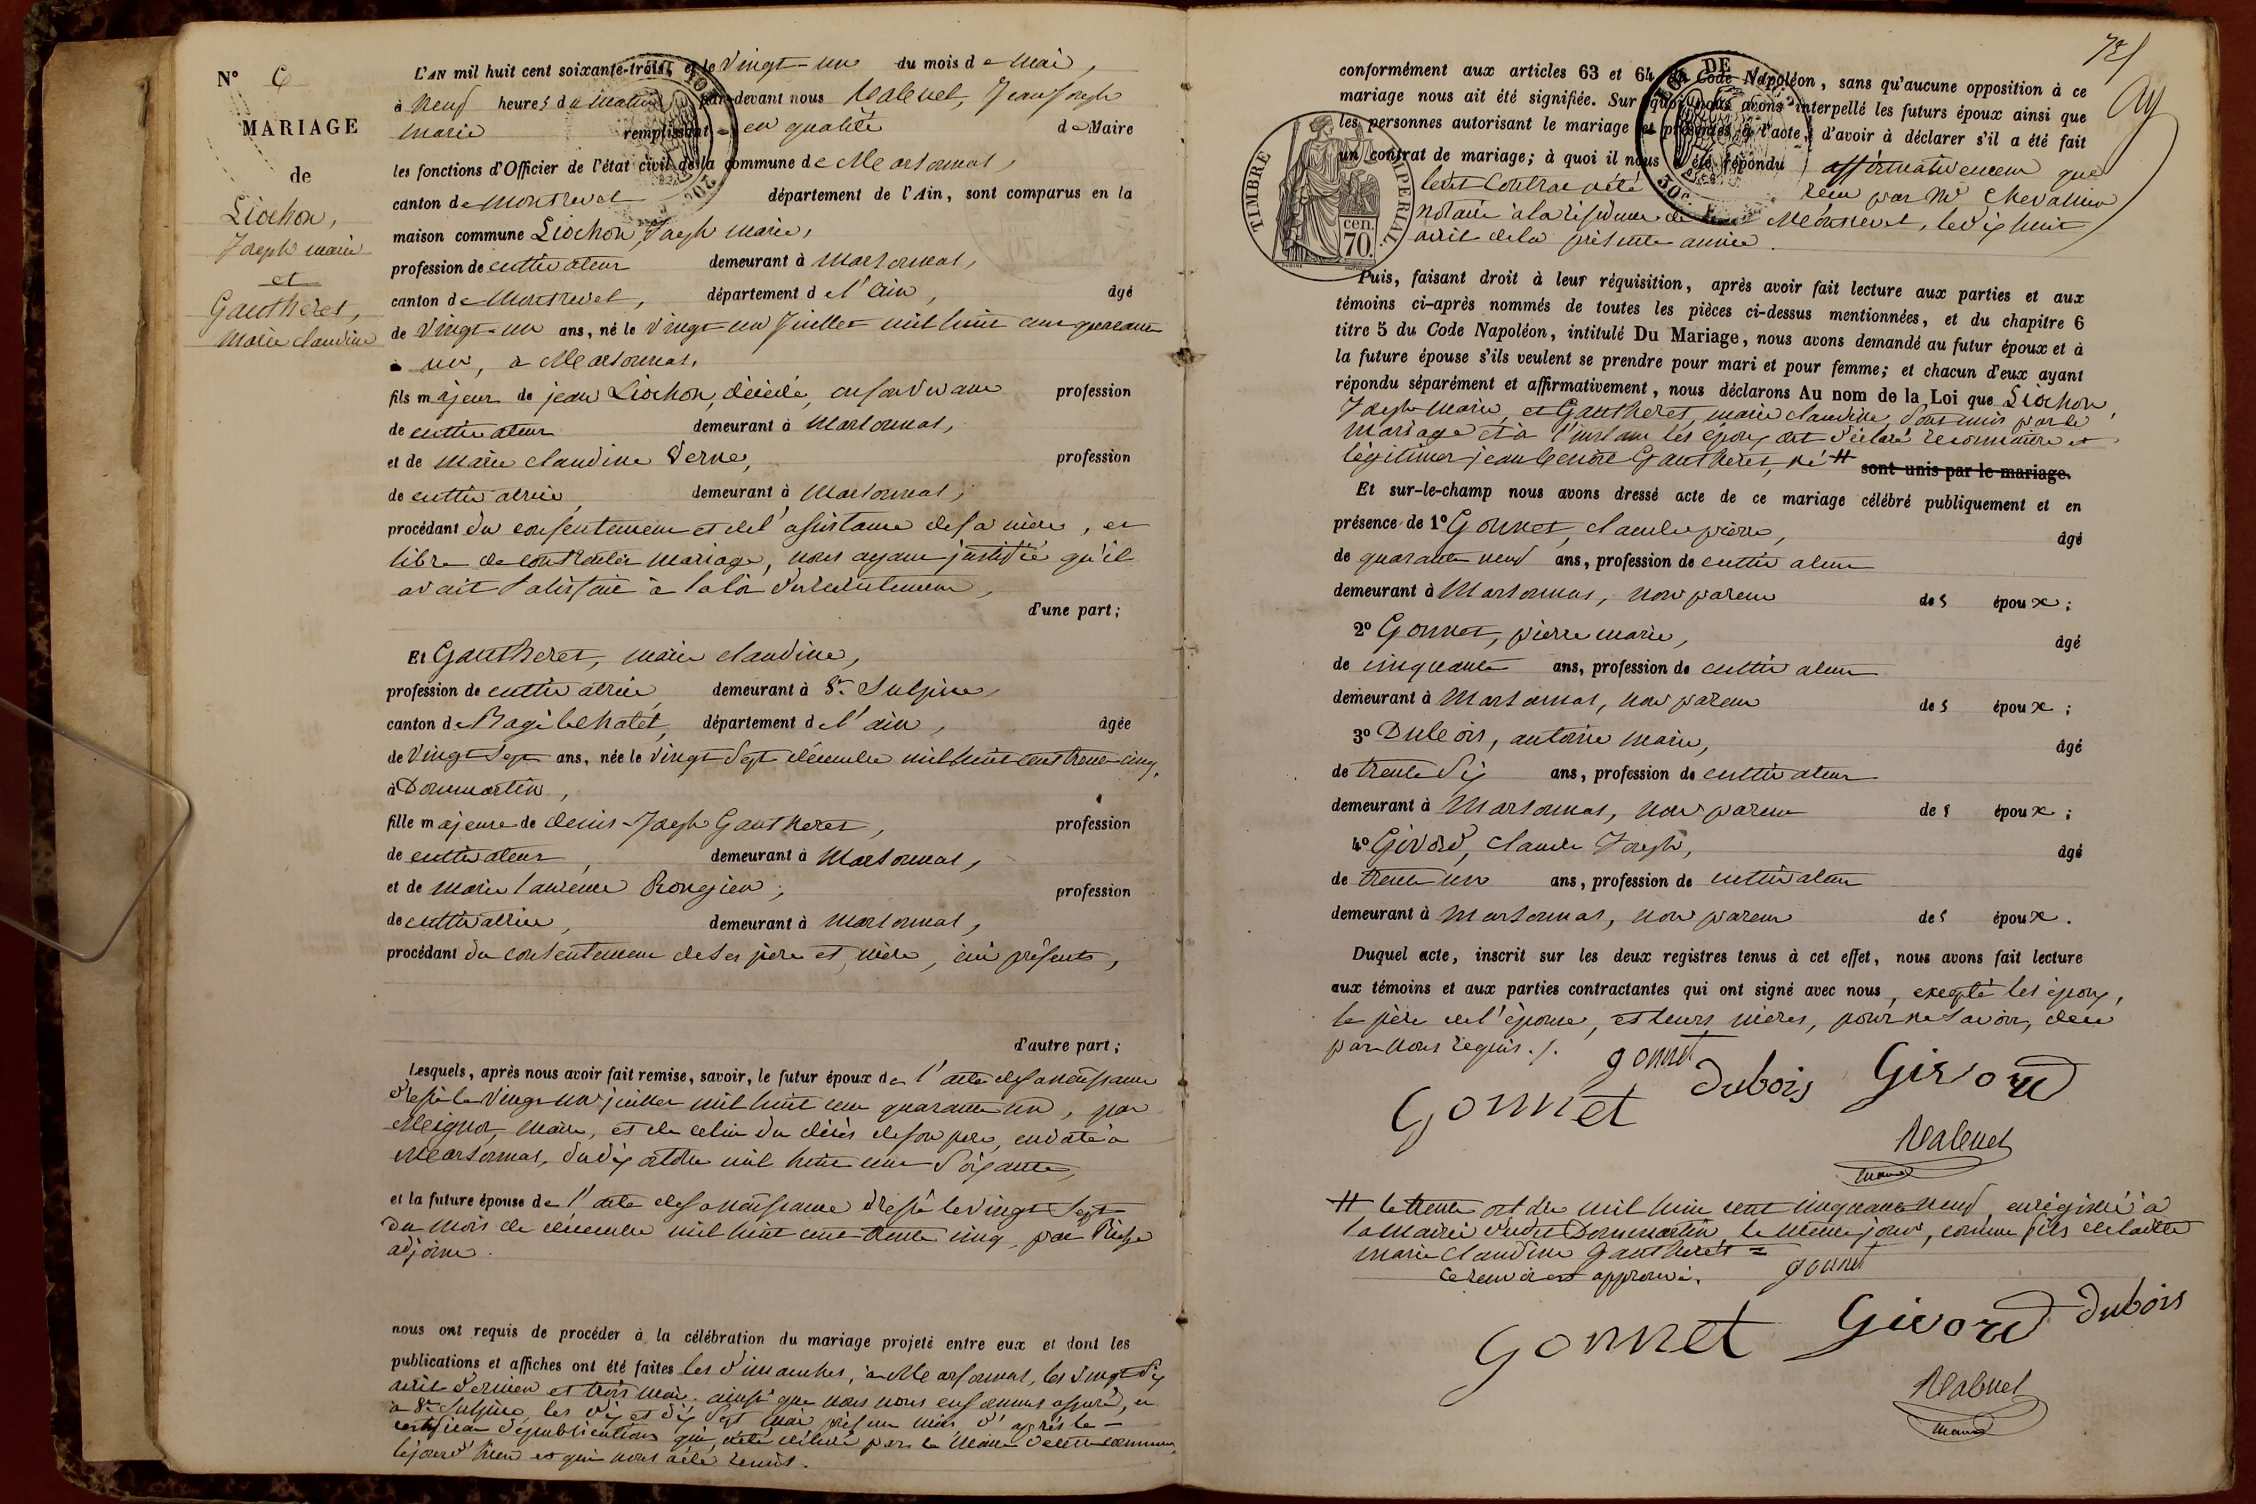 N° 6
MARIAGE
de
Liochon,
Joseph marie
et
Gautheret,
Marie claudine
L'AN mil huit cent soixante-trois, et le Vingt-un du mois de Mai,
à Neuf heures du matin par-devant nous Rabuel, Jean Joseph
Marie remplissant en qualité de Maire
les fonctions d'Officier de l'état civil de la commune de Marsonnas,
canton de Montrevel département de l'Ain, sont comparus en la
maison commune Liochon, Joseph marie,
profession de cultivateur demeurant à Marsonnas,
canton de Montrevel, département de l'Ain, âgé
de Vingt-un ans, né le Vingt un Juillet mil huit cent quarante
un, à Marsonnas,
fils majeur de jean Liochon, décédé, en son vivant profession
de cultivateur demeurant à Marsonnas,
et de Marie claudine Verne, profession
de cultivatrice, demeurant à Marsonnas,
procédant du consentement et de l'assistance de sa mère, et
libre de contracter mariage, nous ayant justifié qu'il
avait satisfait à la loi du recrutement,
d'une part;
Et Gautheret, marie claudine,
profession de cultivatrice, demeurant à St Sulpice,
canton de Bagé le chatel, département de l'ain, âgée
de Vingt Sept ans, née le Vingt Sept décembre mil huit cent trente-cinq,
à Dommartin,
fille majeure de denis-Joseph Gautheret, profession
de cultivateur, demeurant à Marsonnas,
et de Marie laurence Rongier, profession
de cultivatrice, demeurant à Marsonnas,
procédant du consentement de ses père et mère, ici présents,
d'autre part;
Lesquels, après nous avoir fait remise, savoir, le futur époux de l'acte de sa naissance
dressé le Vingt un juillet mil huit cent quarante un, par
maire, et de celui du décès de son père, en date à
Marsonnas, du dix octobre mil huit cent Soixante,
et la future épouse de l'acte de sa naissance dressé le Vingt Sept
du mois de décembre mil huit cent trente cinq, par
adjoint.
nous ont requis de procéder à la célébration du mariage projeté entre eux et dont les
publications et affiches ont été faites les dimanches, à Marsonnas, les Vingt Six
avril dernier et trois mai, ainsi que nous nous en sommes assuré, et
à St Sulpice les dix et dix Sept mai présent mois, d'après le
certificat de publications qui a été délivré par le Maire de cette commune
le jour d'hier et qui nous a été remis.
72
conformément aux articles 63 et 64 du Code Napoléon, sans qu'aucune opposition à ce
mariage nous ait été signifiée. Sur quoi nous avons interpellé les futurs époux ainsi que
les personnes autorisant le mariage et présentes à l'acte, d'avoir à déclarer s'il a été fait
un contrat de mariage; à quoi il nous a été répondu affirmativement que
ledit Contrat a été reçu par Me Chevalier
notaire à la résidence de Montrevel, le dix huit
avril de la présente année.
TIMBRE IMPERIAL
70 cen.
Puis, faisant droit à leur réquisition, après avoir fait lecture aux parties et aux
témoins ci-après nommés de toutes les pièces ci-dessus mentionnées, et du chapitre 6
titre 5 du Code Napoléon, intitulé Du Mariage, nous avons demandé au futur époux et à
la future épouse s'ils veulent se prendre pour mari et pour femme; et chacun d'eux ayant
répondu séparément et affirmativement, nous déclarons Au nom de la Loi que Liochon,
Joseph Marie, et Gautheret, marie claudine, Sont unis par le
Mariage et à l'instant les époux ont déclaré reconnaitre et
légitimer jean benoit Gautheret, né # sont unis par le mariage.
Et sur-le-champ nous avons dressé acte de ce mariage célébré publiquement et en
présence de 1° Gonnet, claude pierre, âgé
de quarante neuf ans, profession de cultivateur
demeurant à Marsonnas, non parent des époux;
2° Gonnet, pierre marie, âgé
de cinquante ans, profession de cultivateur
demeurant à Marsonnas, non parent des époux;
3° Dubois, antoine Marie, âgé
de trente Six ans, profession de cultivateur
demeurant à Marsonnas, non parent des époux;
4° Givord, Claude Joseph, âgé
de trente un ans, profession de cultivateur
demeurant à Marsonnas, non parent des époux.
Duquel acte, inscrit sur les deux registres tenus à cet effet, nous avons fait lecture
aux témoins et aux parties contractantes qui ont signé avec nous, excepté les époux,
le père de l'épouse, et leurs mères, pour ne savoir, de ce
par nous requis./.
gonnet
Gonnet Dubois Givord
Rabuel
maire
# le trente octobre mil huit cent cinquante neuf, enrégistré à
la Mairie dudit Dommartin, le même jour, comme fils de ladite
marie Claudine Gautheret =
Ce renvoi est approuvé. gonnet
Gonnet Givord Dubois
Rabuel
maire